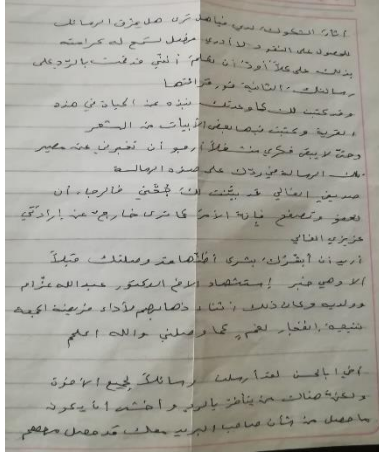 أثار الشكوك لدي فيا هل ترى هل يمزق الرسائل
للحصول على النقود لا أدري هل تسمح له كرامته
بذلك على كلاً أود أن تعلم أنني قد قمت بالرد على
رسالتك الثانية فور قرائتها
وقد كتبت لك كما وعدتك نبذه عن الحياة في هذه
القرية وكتبت فيها بعض الأبيات من الشعر
وحتى لا يبقى فكري منشغلاً أرجو أن تخبرني عن مصير
تلك الرسالة في ردك على هذه الرسالة
صديقي الغالي قد بينت لك حجتي فالرجاء أن
تعفو وتصفح فإن الأمر كما ترى خارج عن إرادتي
عزيزي الغالي
أريد أن أبشرك بشرى أظنها قد وصلتك قبلاً
ألا وهي خبر إستشهاد الاخ الدكتور عبدالله عزام
وولديه وكان ذلك أثناء ذهابهم لأداء فريضة الجمعه
نتيجة إنفجار لغم كما وصلني والله اعلم
أخي أبا الحسن لقد أرسلت رسائلك لجميع الأخوة
ولكن هنالك من يتأخر بالرد وأخشى أن يكون
ما حصل من شأن صاحب البريد معك قد حصل معهم